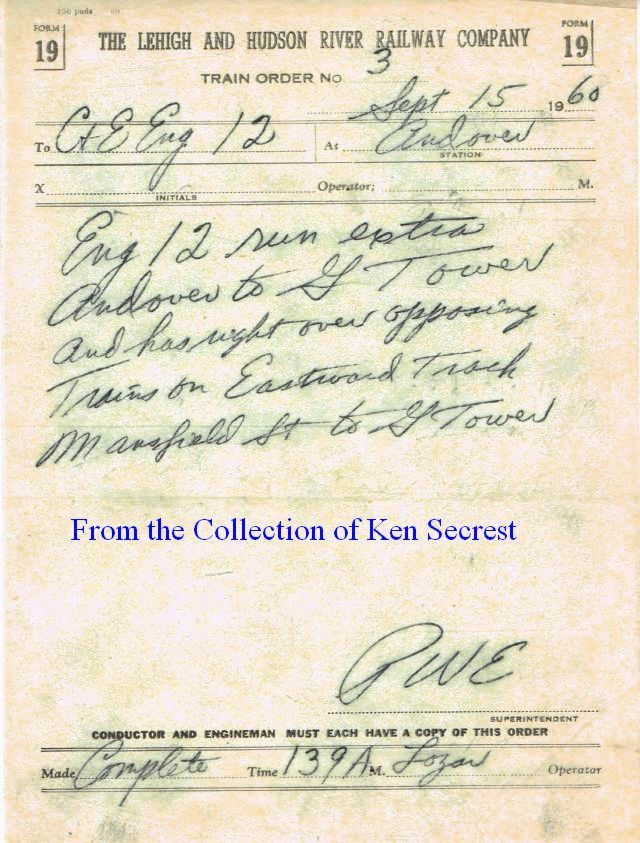 150 pads 60
FORM 19
THE LEHIGH AND HUDSON RIVER RAILWAY COMPANY
FORM 19
TRAIN ORDER NO 3
Sept 15 1960
To C+E Eng 12 At Andover
STATION
X Operator; M.
INITIALS
Eng 12 run extra
Andover to G Tower
and has right over opposing
Trains on Eastward Track
Mansfield St to G Tower
From the Collection of Ken Secrest
RWE
SUPERINTENDENT
CONDUCTOR AND ENGINEMAN MUST EACH HAVE A COPY OF THIS ORDER
Made Complete Time 139 A M. Lozar Operator